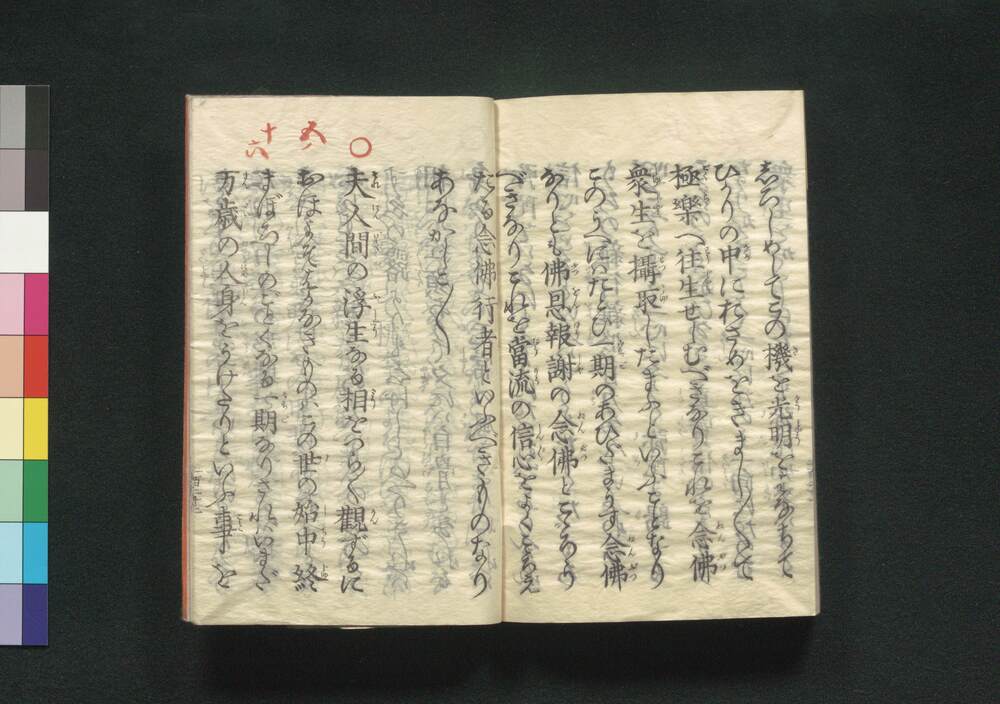 志ろしめしてこの機を光明をはなちて
ひかりの中におさめをきまし〱て
極樂へ往生せしむべきなりこれを念佛
衆生を攝取したまふといふことなり
このうへにはたとひ一期のあひだまうす念佛
なりとも佛恩報謝の念佛とこゝろう
べきなりこれを當流の信心をよくこゝろえ
たる念佛行者といふべきものなり
あなかしこ〱
○
五ノ
十六
夫人間の浮生なる相をつら〱觀ずるに
おほよそはかなきものはこの世の始中終
まぼろしのごとくなる一期なりされはいまだ
万歳の人身をうけたりといふ事を